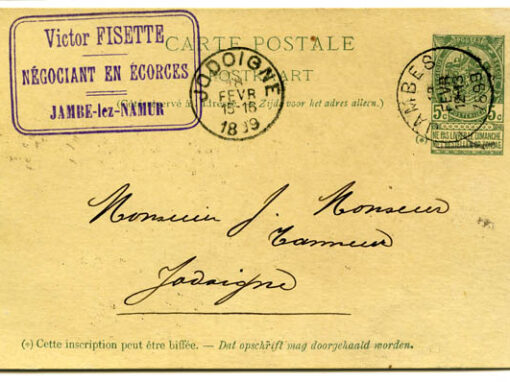 Victor FISETTE
NÉGOCIANT EN ÉCORCES
JAMBE-lez-NAMUR
CARTE POSTALE
POSTKAART
(Côté réservé à l'adresse. — Zijde voor het adres alleen.)
JODOIGNE
FEVR
15-16
JAMBES
FEVR
5c 5c
NE PAS LIVRER LE DIMANCHE
(*)
Monsieur J. Monseur
Tanneur
Jodoigne
(*) Cette inscription peut être biffée. — Dat opschrift mag doorgehaald worden.